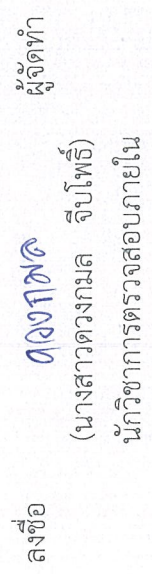 ลงชื่อ ดวงกมล ผู้จัดทำ
(นางสาวดวงกมล จีบโพธิ์)
นักวิชาการตรวจสอบภายใน